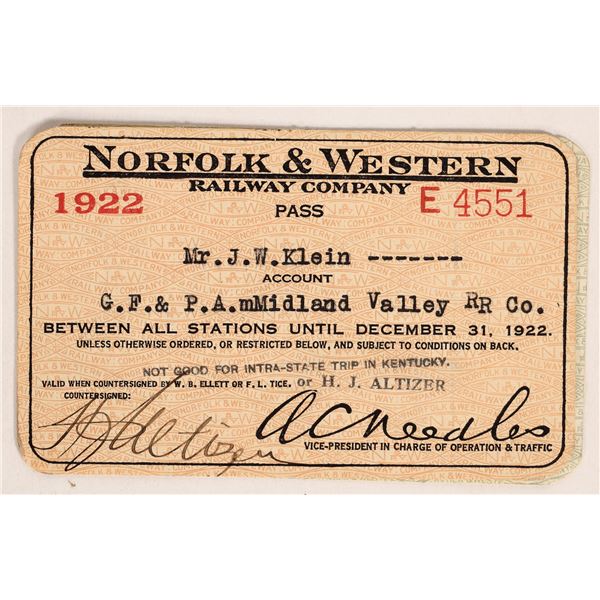 NORFOLK & WESTERN
RAILWAY COMPANY
1922 PASS E 4551
Mr.J.W.Klein -------
ACCOUNT
G.F.& P.A.mMidland Valley RR Co.
BETWEEN ALL STATIONS UNTIL DECEMBER 31, 1922.
UNLESS OTHERWISE ORDERED, OR RESTRICTED BELOW, AND SUBJECT TO CONDITIONS ON BACK.
NOT GOOD FOR INTRA-STATE TRIP IN KENTUCKY.
VALID WHEN COUNTERSIGNED BY W. B. ELLETT OR F. L. TICE. or H. J. ALTIZER
COUNTERSIGNED:
HJ Altizer ACNeedles
VICE-PRESIDENT IN CHARGE OF OPERATION & TRAFFIC